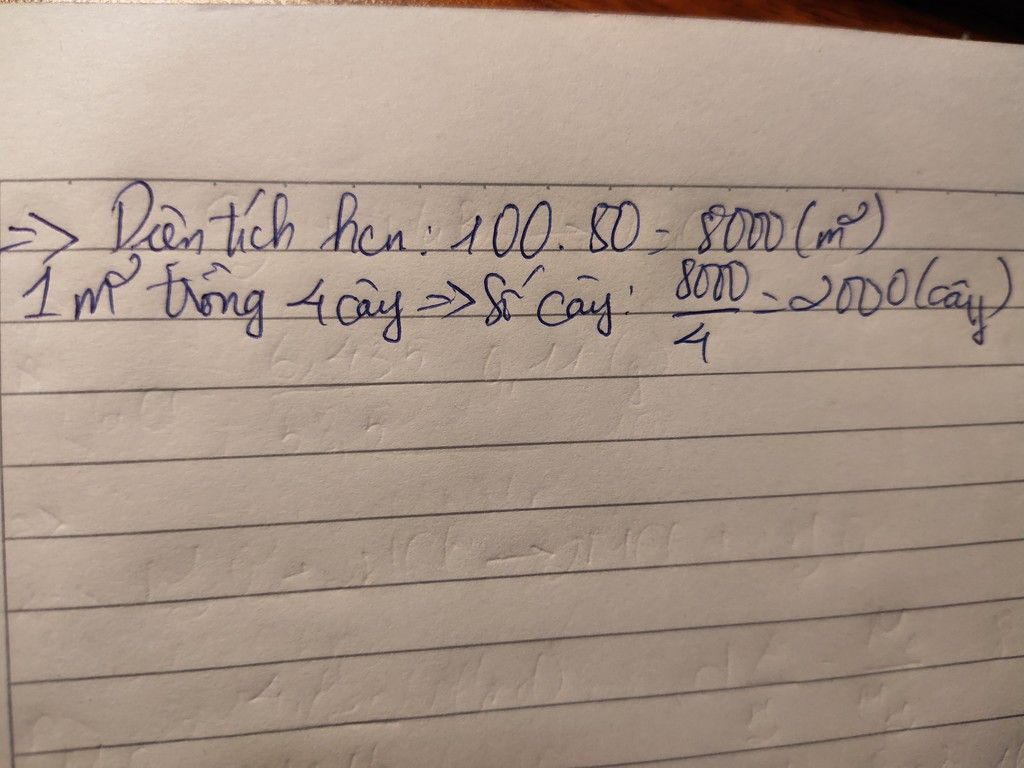 => Diện tích hcn: 100.80 = 8000 (m²)
1 m² trồng 4 cây => Số cây: 8000/4 = 2000 (cây)